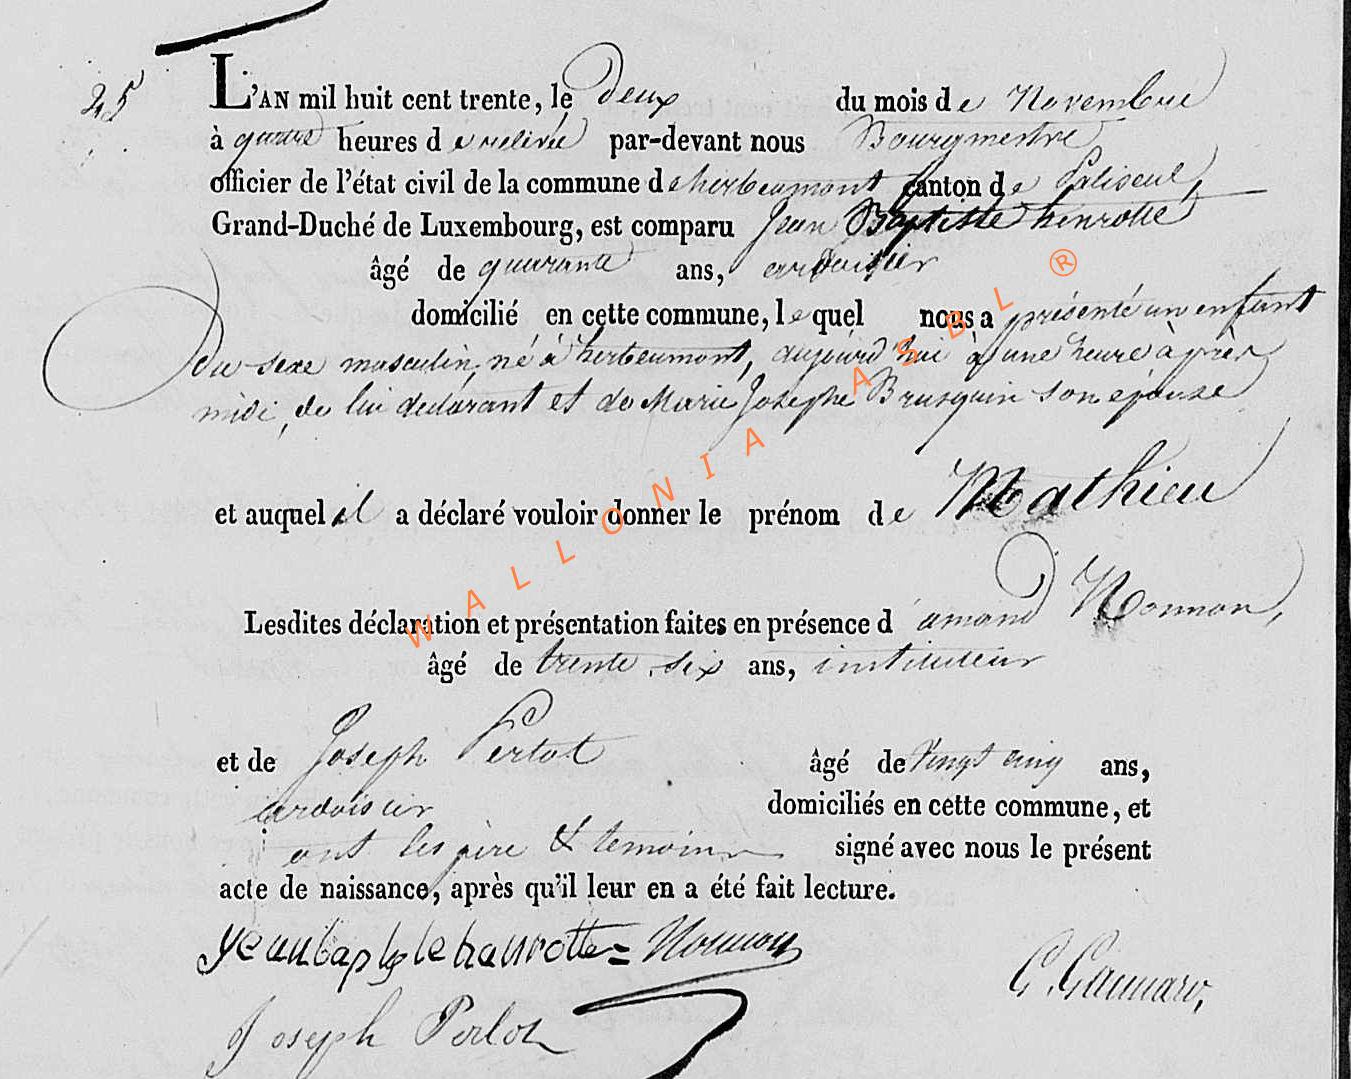 25
L'AN mil huit cent trente, le deux du mois de Novembre
à quatre heures de relevée par-devant nous Bourgmestre
officier de l'état civil de la commune d'herbeumont canton de Paliseul,
Grand-Duché de Luxembourg, est comparu Jean Baptiste henrotte
âgé de quarante ans, ardoisier
domicilié en cette commune, lequel nous a présenté un enfant
du sexe masculin, né à herbeumont, aujourd'hui à une heure après
midi, de lui declarant et de Marie Josephe Brusquin son épouse
et auquel il a déclaré vouloir donner le prénom de Mathieu
Lesdites déclaration et présentation faites en présence d'amand Nonnon,
âgé de trente six ans, instituteur
et de Joseph Perlot âgé de Vingt cinq ans,
ardoisier domiciliés en cette commune, et
ont les père & temoins signé avec nous le présent
acte de naissance, après qu'il leur en a été fait lecture.
Nonnon
Joseph Perlot
WALLONIA ASBL ®